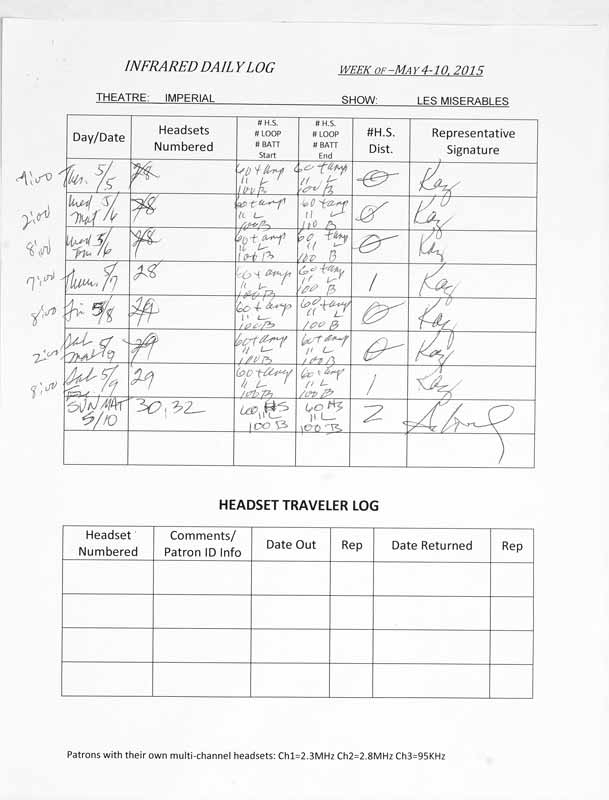 INFRARED DAILY LOG WEEK OF –MAY 4-10, 2015
THEATRE: IMPERIAL SHOW: LES MISERABLES
Day/Date Headsets Numbered # H.S. # LOOP # BATT Start # H.S. # LOOP # BATT End #H.S. Dist. Representative Signature
7:00 Tues. 5/5 28 60 + amp 11 L 100 B 60 + amp 11 L 100 B 0 Kay
2:00 Wed Mat 5/6 28 60 + amp 11 L 100 B 60 + amp 11 L 100 B 0 Kay
8:00 Wed 5/6 28 60 + amp 11 L 100 B 60 + amp 11 L 100 B 0 Kay
7:00 Thurs. 5/7 28 60 + amp 11 L 100 B 60 + amp 11 L 100 B 1 Kay
8:00 Fri 5/8 29 60 + amp 11 L 100 B 60 + amp 11 L 100 B 0 Kay
2:00 Sat Mat 5/9 29 60 + amp 11 L 100 B 60 + amp 11 L 100 B 0 Kay
8:00 Sat 5/9 29 60 + amp 11 L 100 B 60 + amp 11 L 100 B 1 Kay
SUN MAT 5/10 30, 32 60 HS 11 L 100 B 60 HS 11 L 100 B 2
HEADSET TRAVELER LOG
Headset Numbered Comments/ Patron ID Info Date Out Rep Date Returned Rep
Patrons with their own multi-channel headsets: Ch1=2.3MHz Ch2=2.8MHz Ch3=95KHz